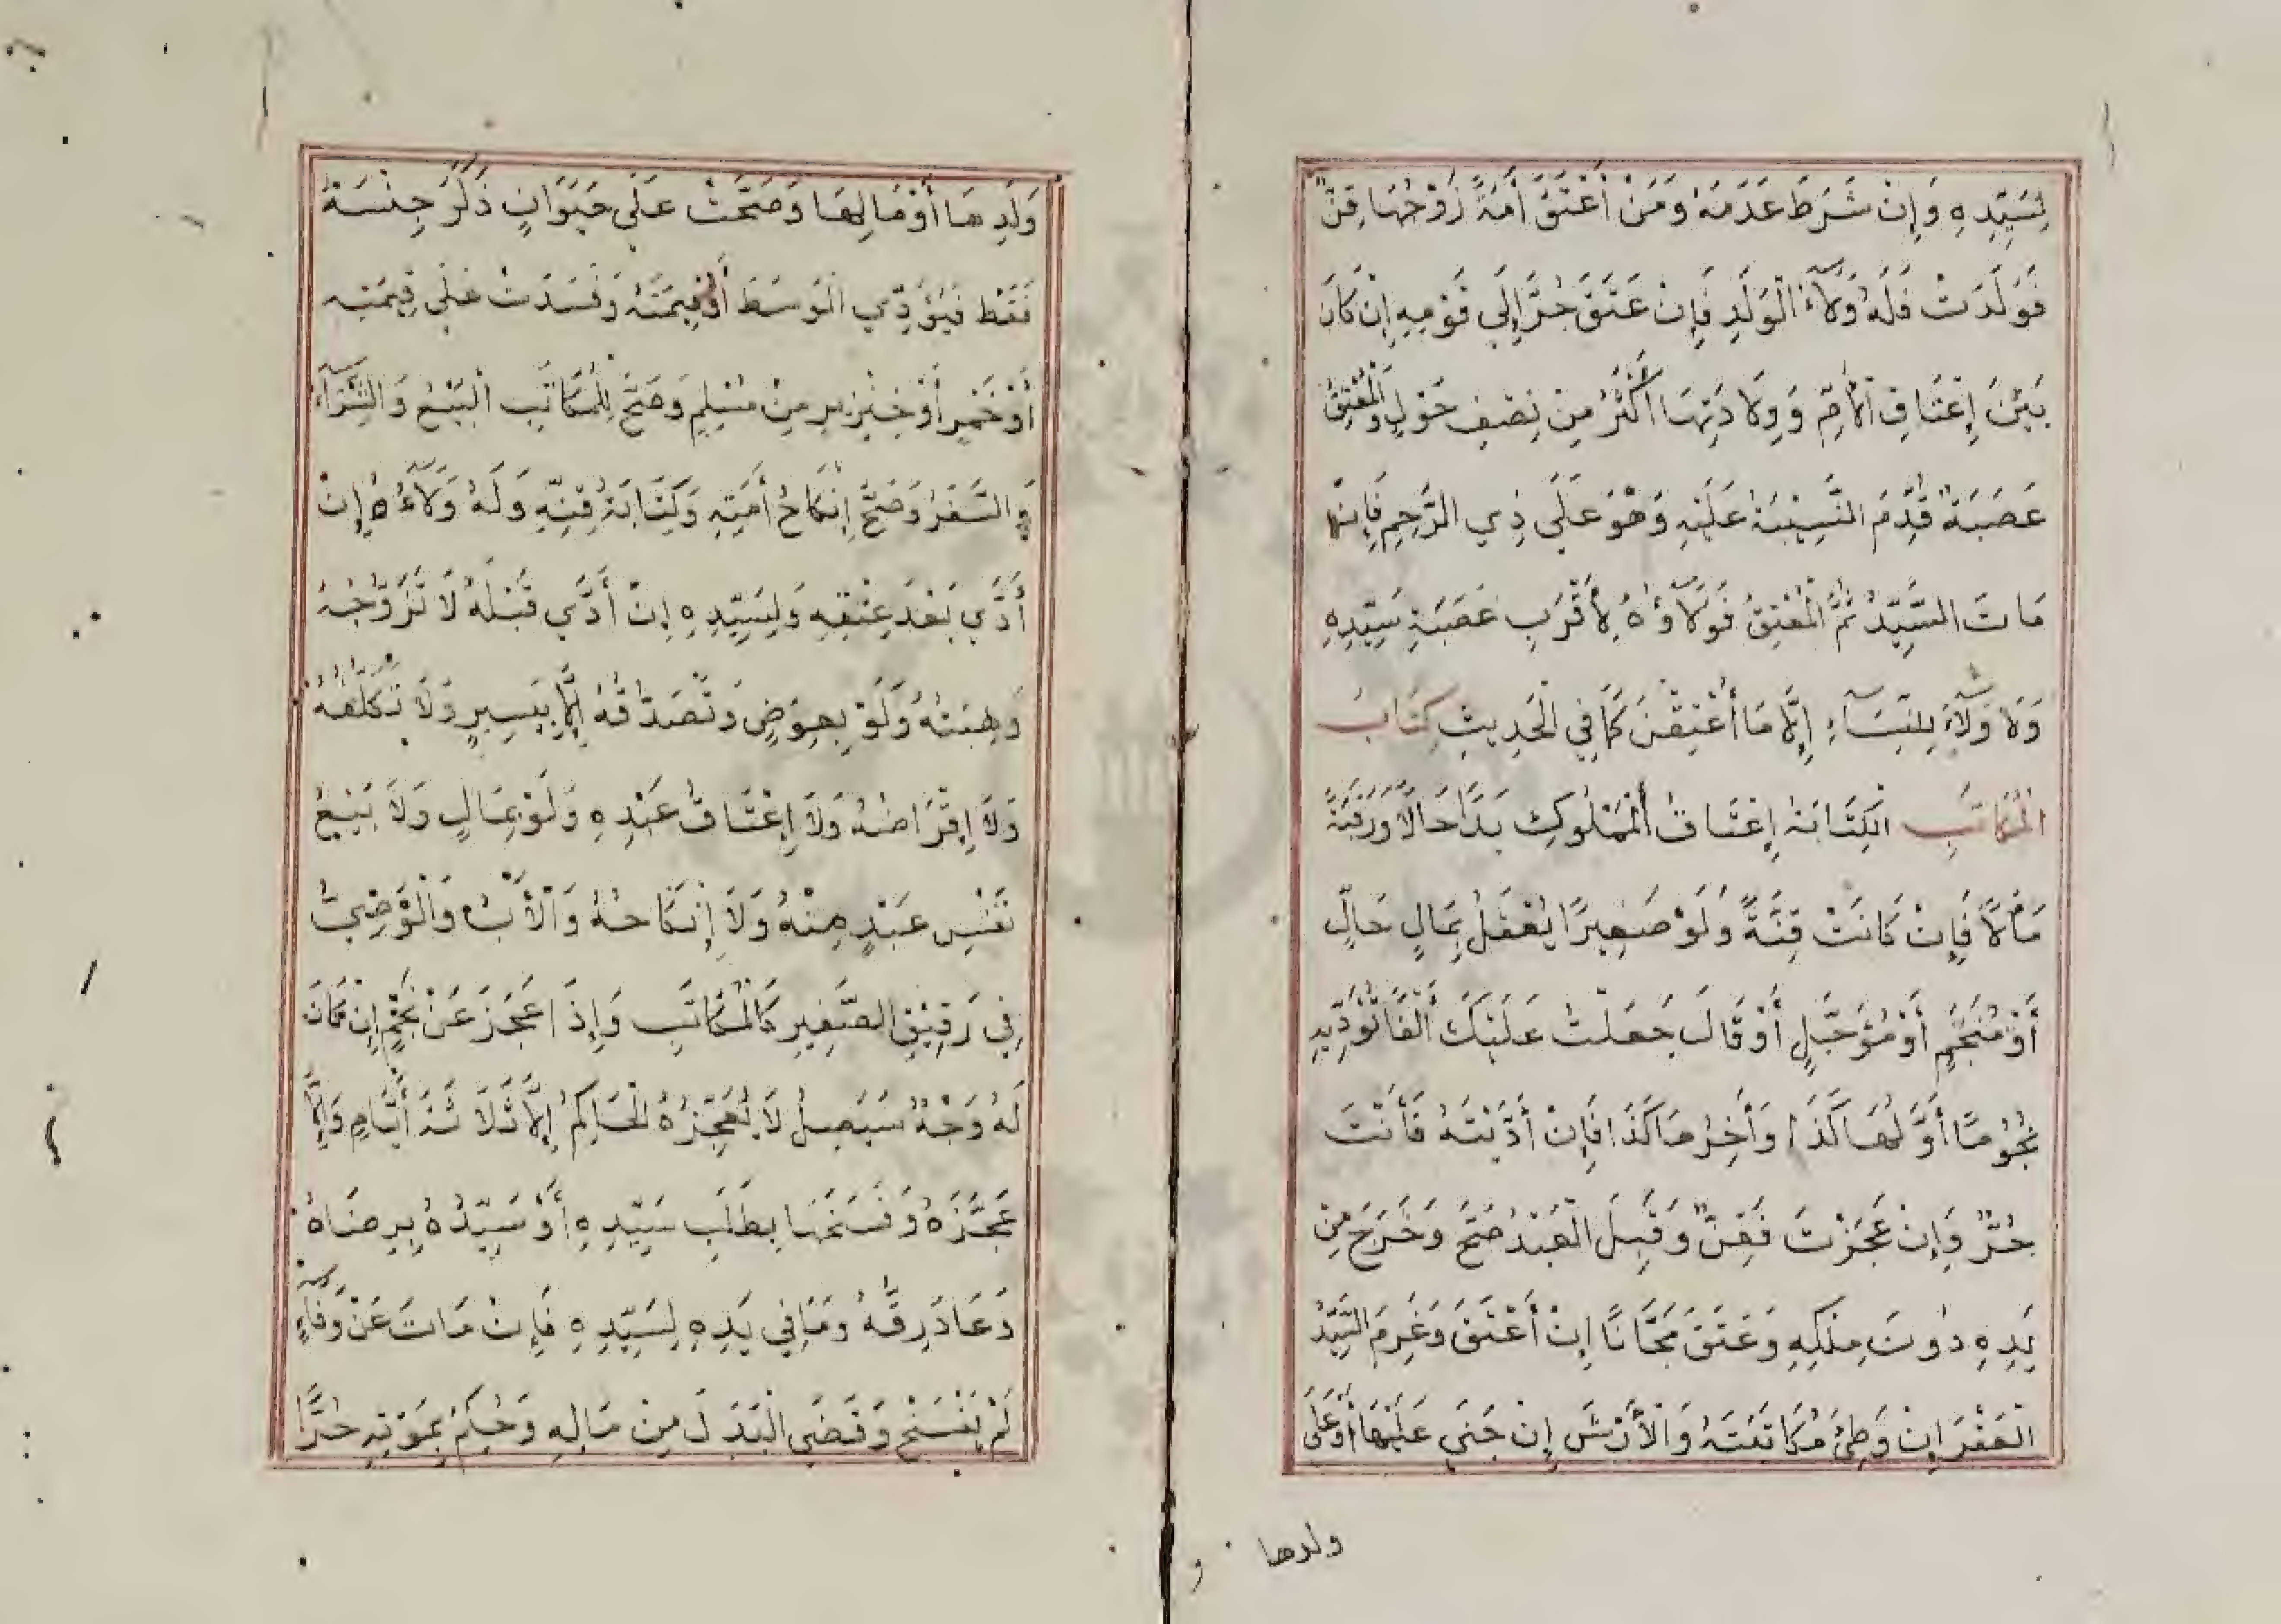 لِسَيِّدِهِ وَإِنْ شَرَطَ عَدَمَهُ وَمَنْ أَعْتَقَ أَمَةً زَوْجُهَا قِنٌّ
فَوَلَدَتْ فَلَهُ وَلَآءُ الْوَلَدِ فَإِنْ عَتَقَ جُرَّ إِلَي قَوْمِهِ إِنْ كَانَ
بَيْنَ إِعْتَاقِ الْأُمِّ وَوِلَادَتِهَا أَكْثَرُ مِنْ نِصْفِ حَوْلٍ وَالْمُعْتِقُ
عَصَبَةٌ قُدِّمَ النَّسِيْبَةُ عَلَيْهِ وَهْوَ عَلَي ذِي الرَّحِمِ فَإِنْ
مَاتَ السَّيِّدُ ثُمَّ الْمُعْتِقُ فَوَلَآؤُهُ لِأَقْرَبِ عَصَبَةِ سَيِّدِهِ
وَلَا وَلَآءَ لِلنِّسَآءِ إِلَّا مَا أَعْتَقْنَ كَمَا فِي الْحَدِيثِ كِتَابُ
الْمُكَاتَبِ الْكِتَابَةُ إِعْتَاقُ الْمَمْلُوكِ يَدًا حَالًا وَرَقَبَةً
مَآلًا فَإِنْ كَاتَبَ قِنَّهُ وَلَوْ صَغِيرًا يَعْقِلُ بِمَالٍ حَالٍّ
أَوْ مُنَجَّمٍ أَوْ مُؤَجَّلٍ أَوْ قَالَ جَعَلْتُ عَلَيْكَ أَلْفًا تُؤَدِّيهِ
نُجُوْمًا أَوَّلُهَا كَذَا وَأٰخِرُهَا كَذَا فَإِنْ أَدَّيْتَهُ فَأَنْتَ
حُرٌّ وَإِنْ عَجَزْتَ فَقِنٌّ وَقَبِلَ الْعَبْدُ صَحَّ وَخَرَجَ مِنْ
يَدِهِ دُوْنَ مِلْكِهِ وَعَتَقَ مَجَّانًا إِنْ أَعْتَقَ وَغَرِمَ السَّيِّدُ
الْعُقْرَ إِنْ وَطِئَ مُكَاتَبَتَهُ وَالْأَرْشَ إِنْ جَنَي عَلَيْهَا أَوْ عَلَي
ولدها
وَلَدِهَا أَوْ مَالِهَا وَصَحَّتْ عَلَي حَيَوَانٍ ذَكَرَ جِنْسَهُ
فَقَطْ فَيُؤَدِّي الْوَسَطَ أَوْ قِيمَتَهُ وَفَسَدَتْ عَلَي قِيمَتِهِ
أَوْ خَمْرٍ أَوْ خِنْزِيرٍ مِنْ مُسْلِمٍ وَصَحَّ لِلْمُكَاتَبِ الْبَيْعُ وَالشِّرَآءُ
وَالسَّفَرُ وَصَحَّ إِنْكَاحُ أَمَتِهِ وَكِتَابَةُ قِنِّهِ وَلَهُ وَلَآءُهُ إِنْ
أَدَّي بَعْدَ عِتْقِهِ وَلِسَيِّدِهِ إِنْ أَدَّي قَبْلَهُ لَا تَزَوُّجُهُ
وَهِبَتُهُ وَلَوْ بِعِوَضٍ وَتَصَدُّقُهُ إِلَّا بِيَسِيرٍ وَلَا تَكَفُّلُهُ
وَلَا إِقْرَاضُهُ وَلَا إِعْتَاقُ عَبْدِهِ وَلَوْ بِمَالٍ وَلَا بَيْعُ
نَفْسِ عَبْدٍ مِنْهُ وَلَا إِنْكَاحُهُ وَالْأَبُ وَالْوَصِيُّ
فِي رَقِيْقِ الصَّغِيرِ كَالْمُكَاتَبِ وَإِذَا عَجَزَ عَنْ نَجْمٍ إِنْ كَانَ
لَهُ وَجْهٌ سَيَصِلُ لَا يُعَجِّزُهُ الْحَاكِمُ إِلَّا ثَلَاثَةَ أَيَّامٍ وَإِلَّا
عَجَّزَهُ وَفَسَخَهَا بِطَلَبِ سَيِّدِهِ أَوْ سَيِّدُهُ بِرِضَاهُ
وَعَادَ رِقُّهُ وَمَا فِي يَدِهِ لِسَيِّدِهِ فَإِنْ مَاتَ عَنْ وَفَآءٍ
لَمْ يَفْسَخْ وَقَضَي الْبَدَلَ مِنْ مَالِهِ وَحُكِمَ بِمَوْتِهِ حُرًّا